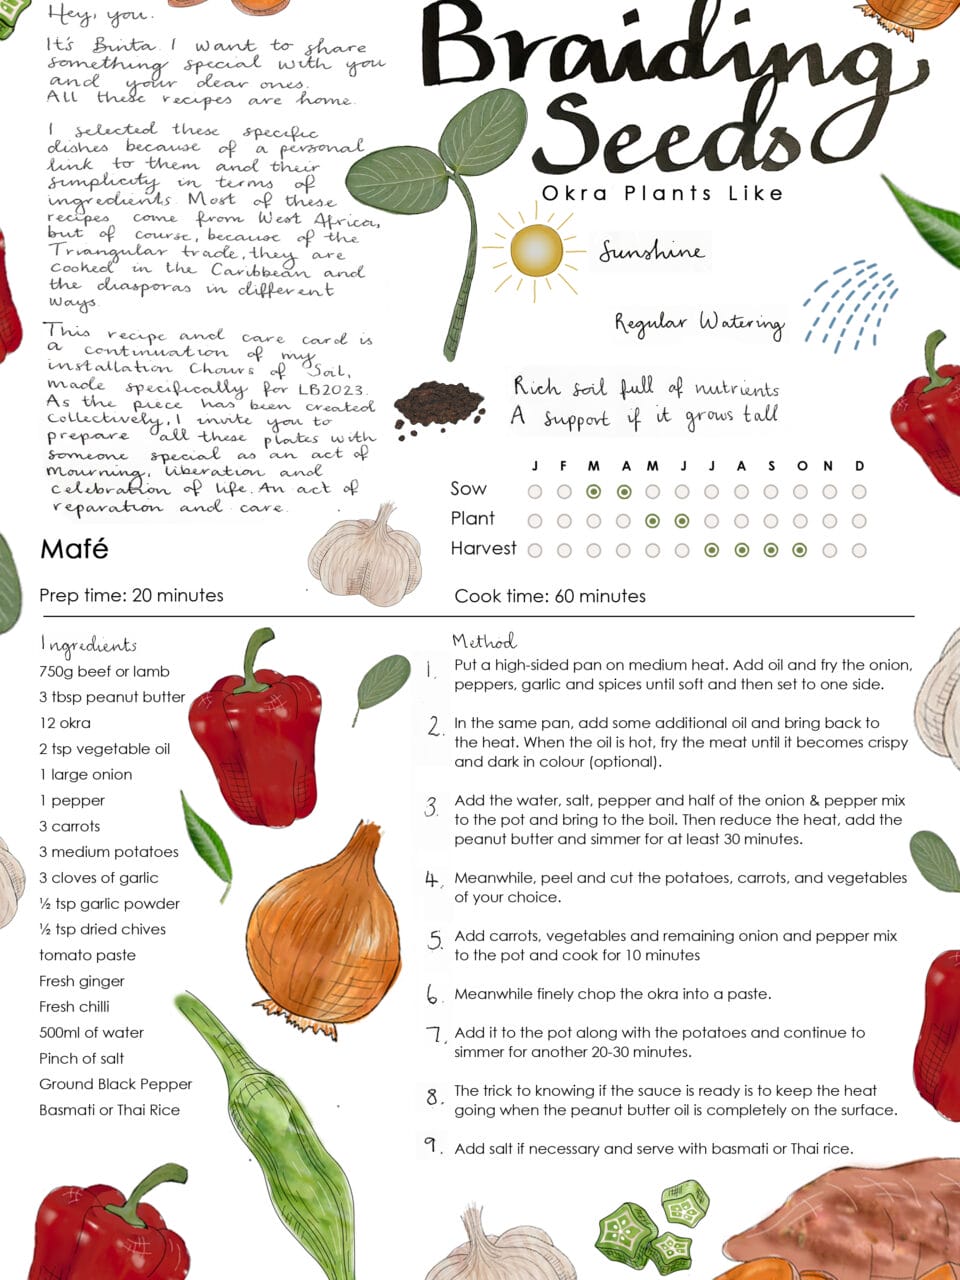 Hey, you.
It's Binta. I want to share
something special with you
and your dear ones.
All these recipes are home.
I selected these specific
dishes because of a personal
link to them and their
simplicity in terms of
ingredients. Most of these
recipes come from West Africa,
but of course, because of the
Triangular trade, they are
cooked in the Caribbean and
the diasporas in different
ways.
This recipe and care card is
a continuation of my
installation Chours of Soil,
made specifically for LB2023.
As the piece has been created
collectively, I invite you to
prepare all these plates with
someone special as an act of
mourning, liberation and
celebration of life. An act of
reparation and care.
Braiding
Seeds
Okra Plants Like
Sunshine
Regular Watering
Rich soil full of nutrients
A support if it grows tall
J F M A M J J A S O N D
Sow
Plant
Harvest
Mafé
Prep time: 20 minutes
Cook time: 60 minutes
Ingredients
750g beef or lamb
3 tbsp peanut butter
12 okra
2 tsp vegetable oil
1 large onion
1 pepper
3 carrots
3 medium potatoes
3 cloves of garlic
½ tsp garlic powder
½ tsp dried chives
tomato paste
Fresh ginger
Fresh chilli
500ml of water
Pinch of salt
Ground Black Pepper
Basmati or Thai Rice
Method
1. Put a high-sided pan on medium heat. Add oil and fry the onion,
peppers, garlic and spices until soft and then set to one side.
2. In the same pan, add some additional oil and bring back to
the heat. When the oil is hot, fry the meat until it becomes crispy
and dark in colour (optional).
3. Add the water, salt, pepper and half of the onion & pepper mix
to the pot and bring to the boil. Then reduce the heat, add the
peanut butter and simmer for at least 30 minutes.
4. Meanwhile, peel and cut the potatoes, carrots, and vegetables
of your choice.
5. Add carrots, vegetables and remaining onion and pepper mix
to the pot and cook for 10 minutes
6. Meanwhile finely chop the okra into a paste.
7. Add it to the pot along with the potatoes and continue to
simmer for another 20-30 minutes.
8. The trick to knowing if the sauce is ready is to keep the heat
going when the peanut butter oil is completely on the surface.
9. Add salt if necessary and serve with basmati or Thai rice.